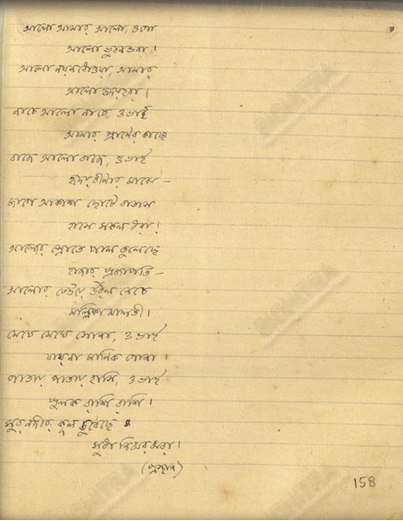 আলো আমার আলো, ওগো
আলো ভুবনভরা।
আলো নয়নধোওয়া, আমার
আলো হৃদয়হরা।
নাচে আলো নাচে, ও ভাই
আমার প্রাণের কাছে
বাজে আলো বাজে, ও ভাই
হৃদয়বীণার মাঝে—
জাগে আকাশ ছোটে বাতাস
হাসে সকল ধরা।
আলোর স্রোতে পাল তুলেছে
হাজার প্রজাপতি—
আলোর ঢেউয়ে উঠল মেতে
মল্লিকা মালতী।
মেঘে মেঘে সোনা, ও ভাই
যায়না মানিক গোনা
পাতায় পাতায় হাসি, ও ভাই
পুলক রাশি রাশি।
সুরনদীর কূল ডুবেছে
সুধা নিঝর ঝরা।
(প্রস্থান)
158